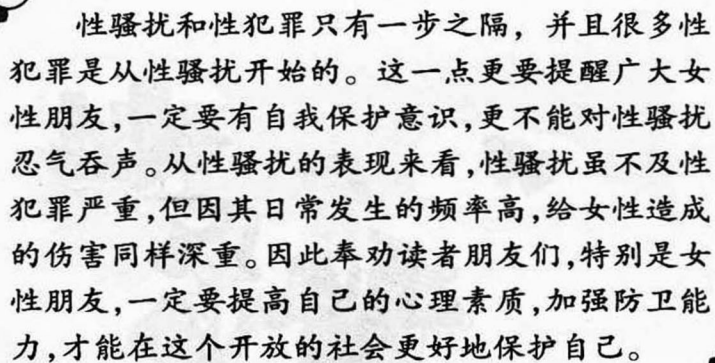 性骚扰和性犯罪只有一步之隔，并且很多性
犯罪是从性骚扰开始的。这一点更要提醒广大女
性朋友,一定要有自我保护意识,更不能对性骚扰
忍气吞声。从性骚扰的表现来看,性骚扰虽不及性
犯罪严重,但因其日常发生的频率高,给女性造成
的伤害同样深重。因此奉劝读者朋友们,特别是女
性朋友,一定要提高自己的心理素质,加强防卫能
力,才能在这个开放的社会更好地保护自己。